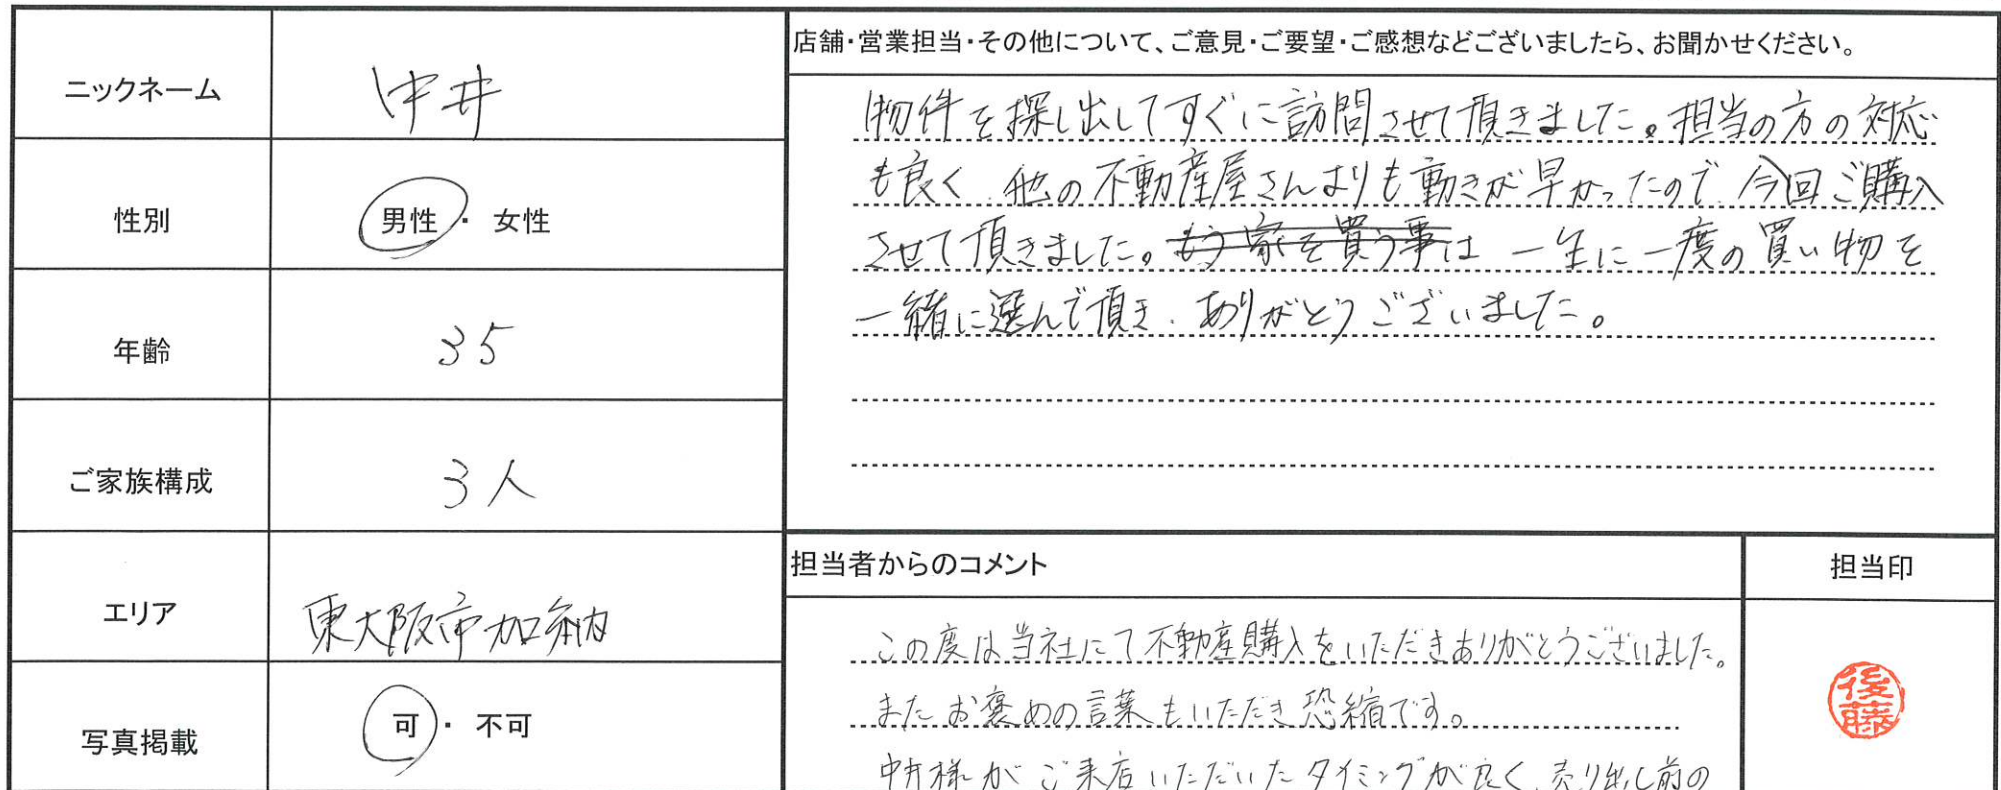 ニックネーム
中井
性別
男性・女性
年齢
35
ご家族構成
3人
エリア
東大阪市加納
写真掲載
可・不可
店舗・営業担当・その他について、ご意見・ご要望・ご感想などございましたら、お聞かせください。
物件を探し出してすぐに訪問させて頂きました。担当の方の対応
も良く、他の不動産屋さんよりも動きが早かったので、今回ご購入
させて頂きました。もう家を買う事は一生に一度の買い物を
一緒に選んで頂き、ありがとうございました。
担当者からのコメント
この度は当社にて不動産購入をいただきありがとうございました。
またお褒めの言葉もいただき恐縮です。
中井様がご来店いただいたタイミングが良く、売り出し前の
担当印
後藤